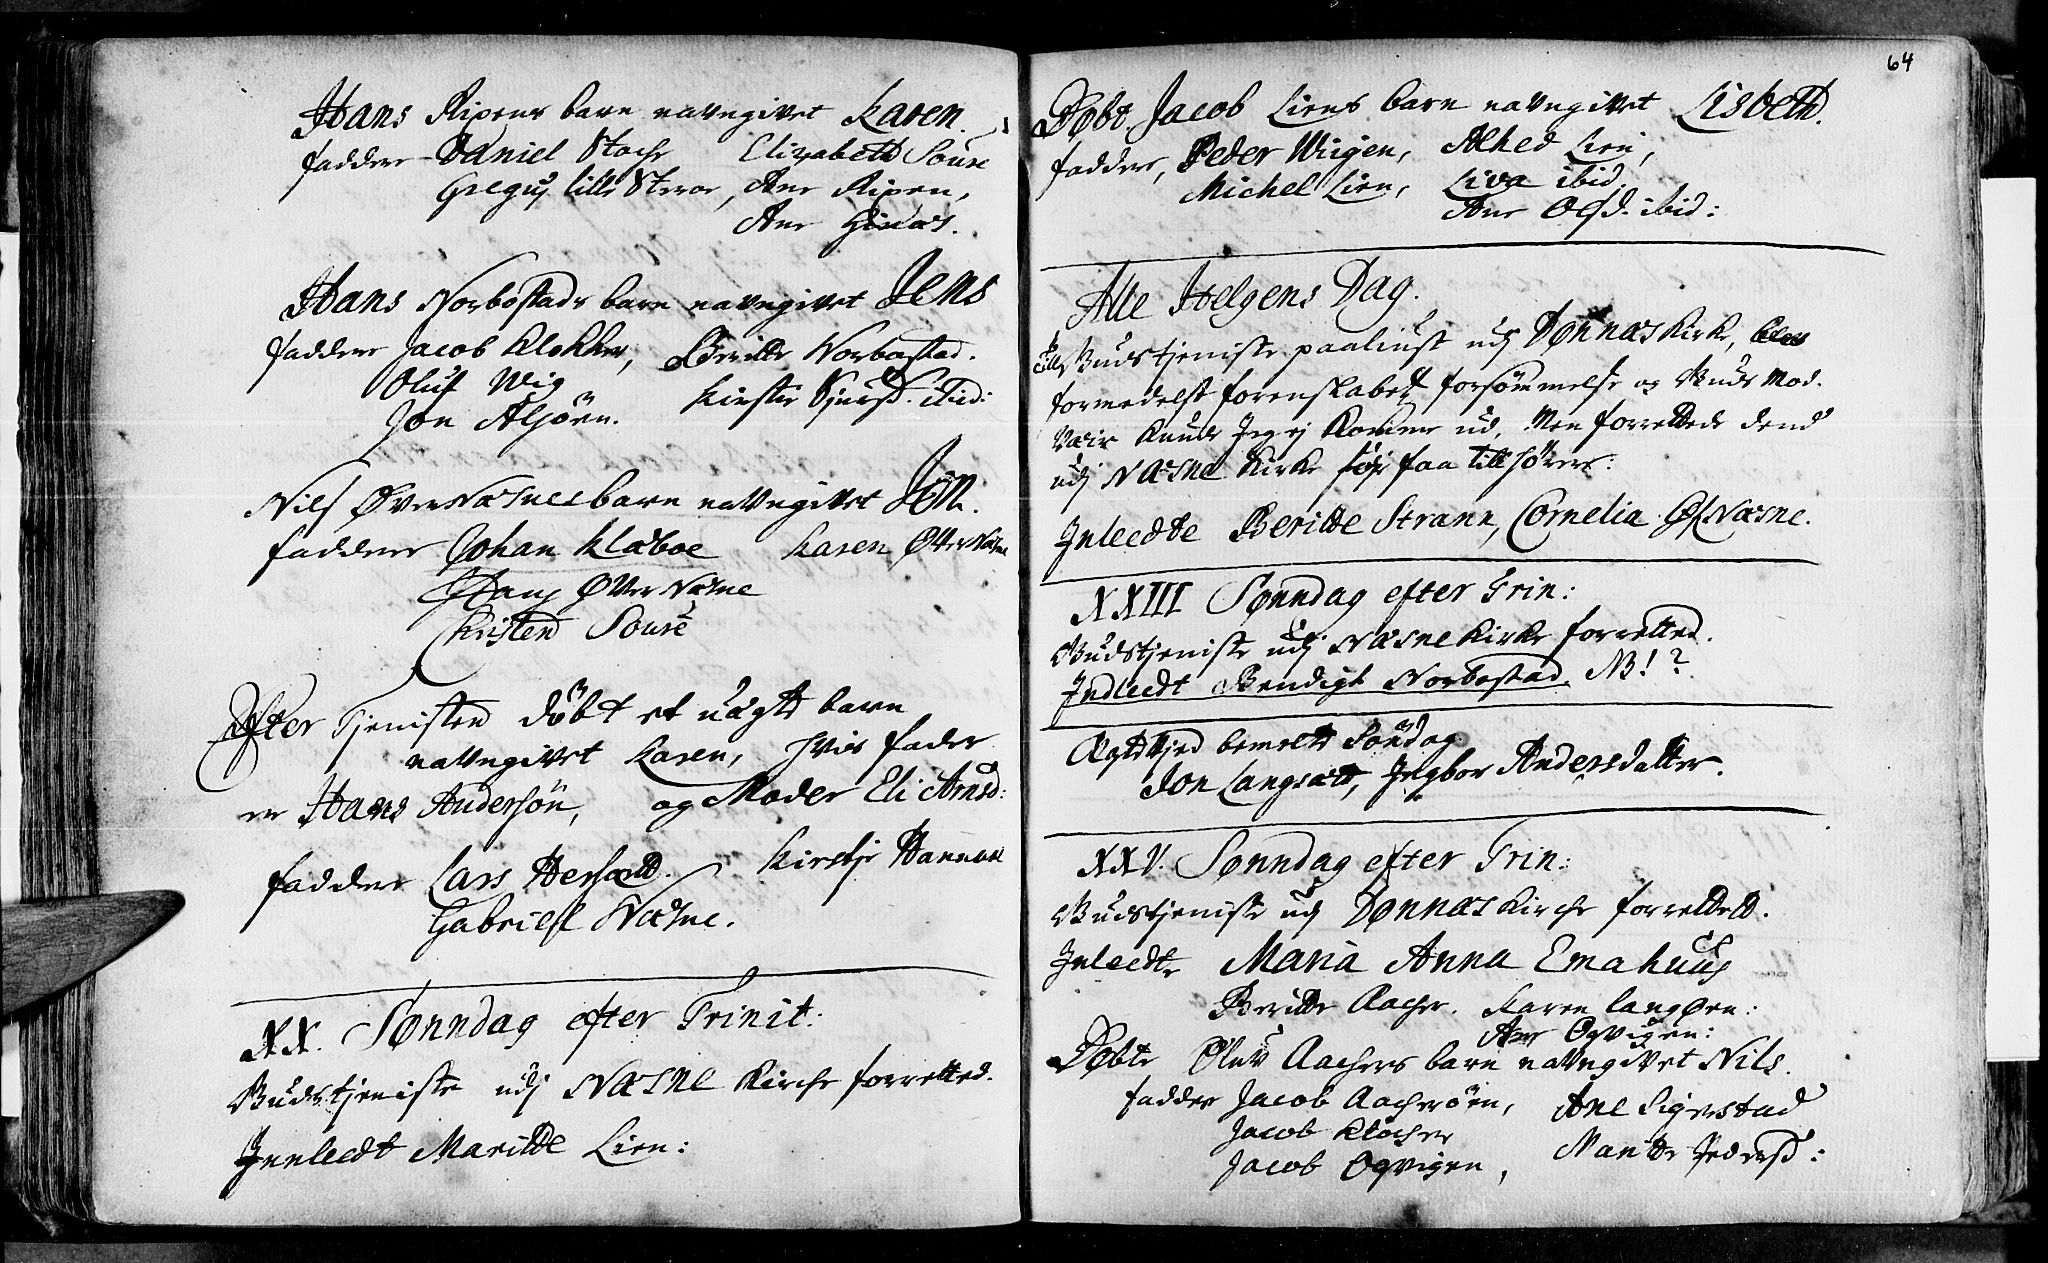 Hans Ripens barn navngivet Karen.
faddere Daniel Stochr Elizabeth Souse
Gregus lille Steroe, Ane Ripen,
Ane
Hans Norbostads barn navngivet Jens
faddere Jacob Klokker, Beritte Norbostad.
Oluf Wig Kirstin Sjursd. ibid:
Jon Alsöen.
Nils Øver Næsnes barn navngivet Jon.
faddere Johan Klæboe Karen Øver Næsne
Hans Øver Næsne
Christen Souse
Efter Tjenisten döbt et uægte barn
navngivet Karen, hvis fader
er Hans Andersön, og Moder Eli Arnsd:
faddere Lars Herset. Kirstje Hannæs
Gabriel Næsne.
XX. Sønndag efter Trinit:
Gudstjeniste udj Næsne Kirche forretted.
Innleedt Maritte Lien:
64
Døbt Jacob Liens barn navngivet Lisbeth.
faddere, Peder Wiigen, Alhed Lien,
Michel Lien, Liva ibid
Ane Olsd. ibid:
Alle Helgens Dag.
Gudstjeniste paaliust udj Dønnæs Kirke, blev
till
formedelst forenskabets forsömmelse og Guds Mod.
Vair kunde Jeg ej komme ud, Men forrettede dend
udj Næsne Kirke for faa tillhörere:
Inleedte Beritte Strann, Cornelia Øf Næsne.
XXIII Sønndag efter Trin:
Gudstjeniste udj Næsne Kirke forretted.
Indleedt Bendigt Norbostad. NB!?
Ægtevied bemelte Söndag
Jon Langsætt, Ingbor Andersdatter.
XXV. Sønndag efter Trin:
Gudstjeniste udj Dønnæs Kirche forrettett.
Inleedte Maria Anna Emahuus
Beritte Aacher. Karen Langøen:
Ane Ogvigen:
Døbte Oluv Aachers barn navngivet Nils.
faddere Jacob Aacherøen, Ane Sigerstad
Jacob Klocher Maritte Pedersd:
Jacob Ogvigen,